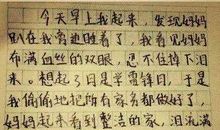 今天早上我起来，发现妈妈
趴在我旁边睡着了，我看见妈妈
布满血丝的双眼，忍不住掉下泪
来。想起了今日是学雷锋日，于是
我偷偷地把所有家务都做好了，
妈妈起来看到整洁的家，泪流满